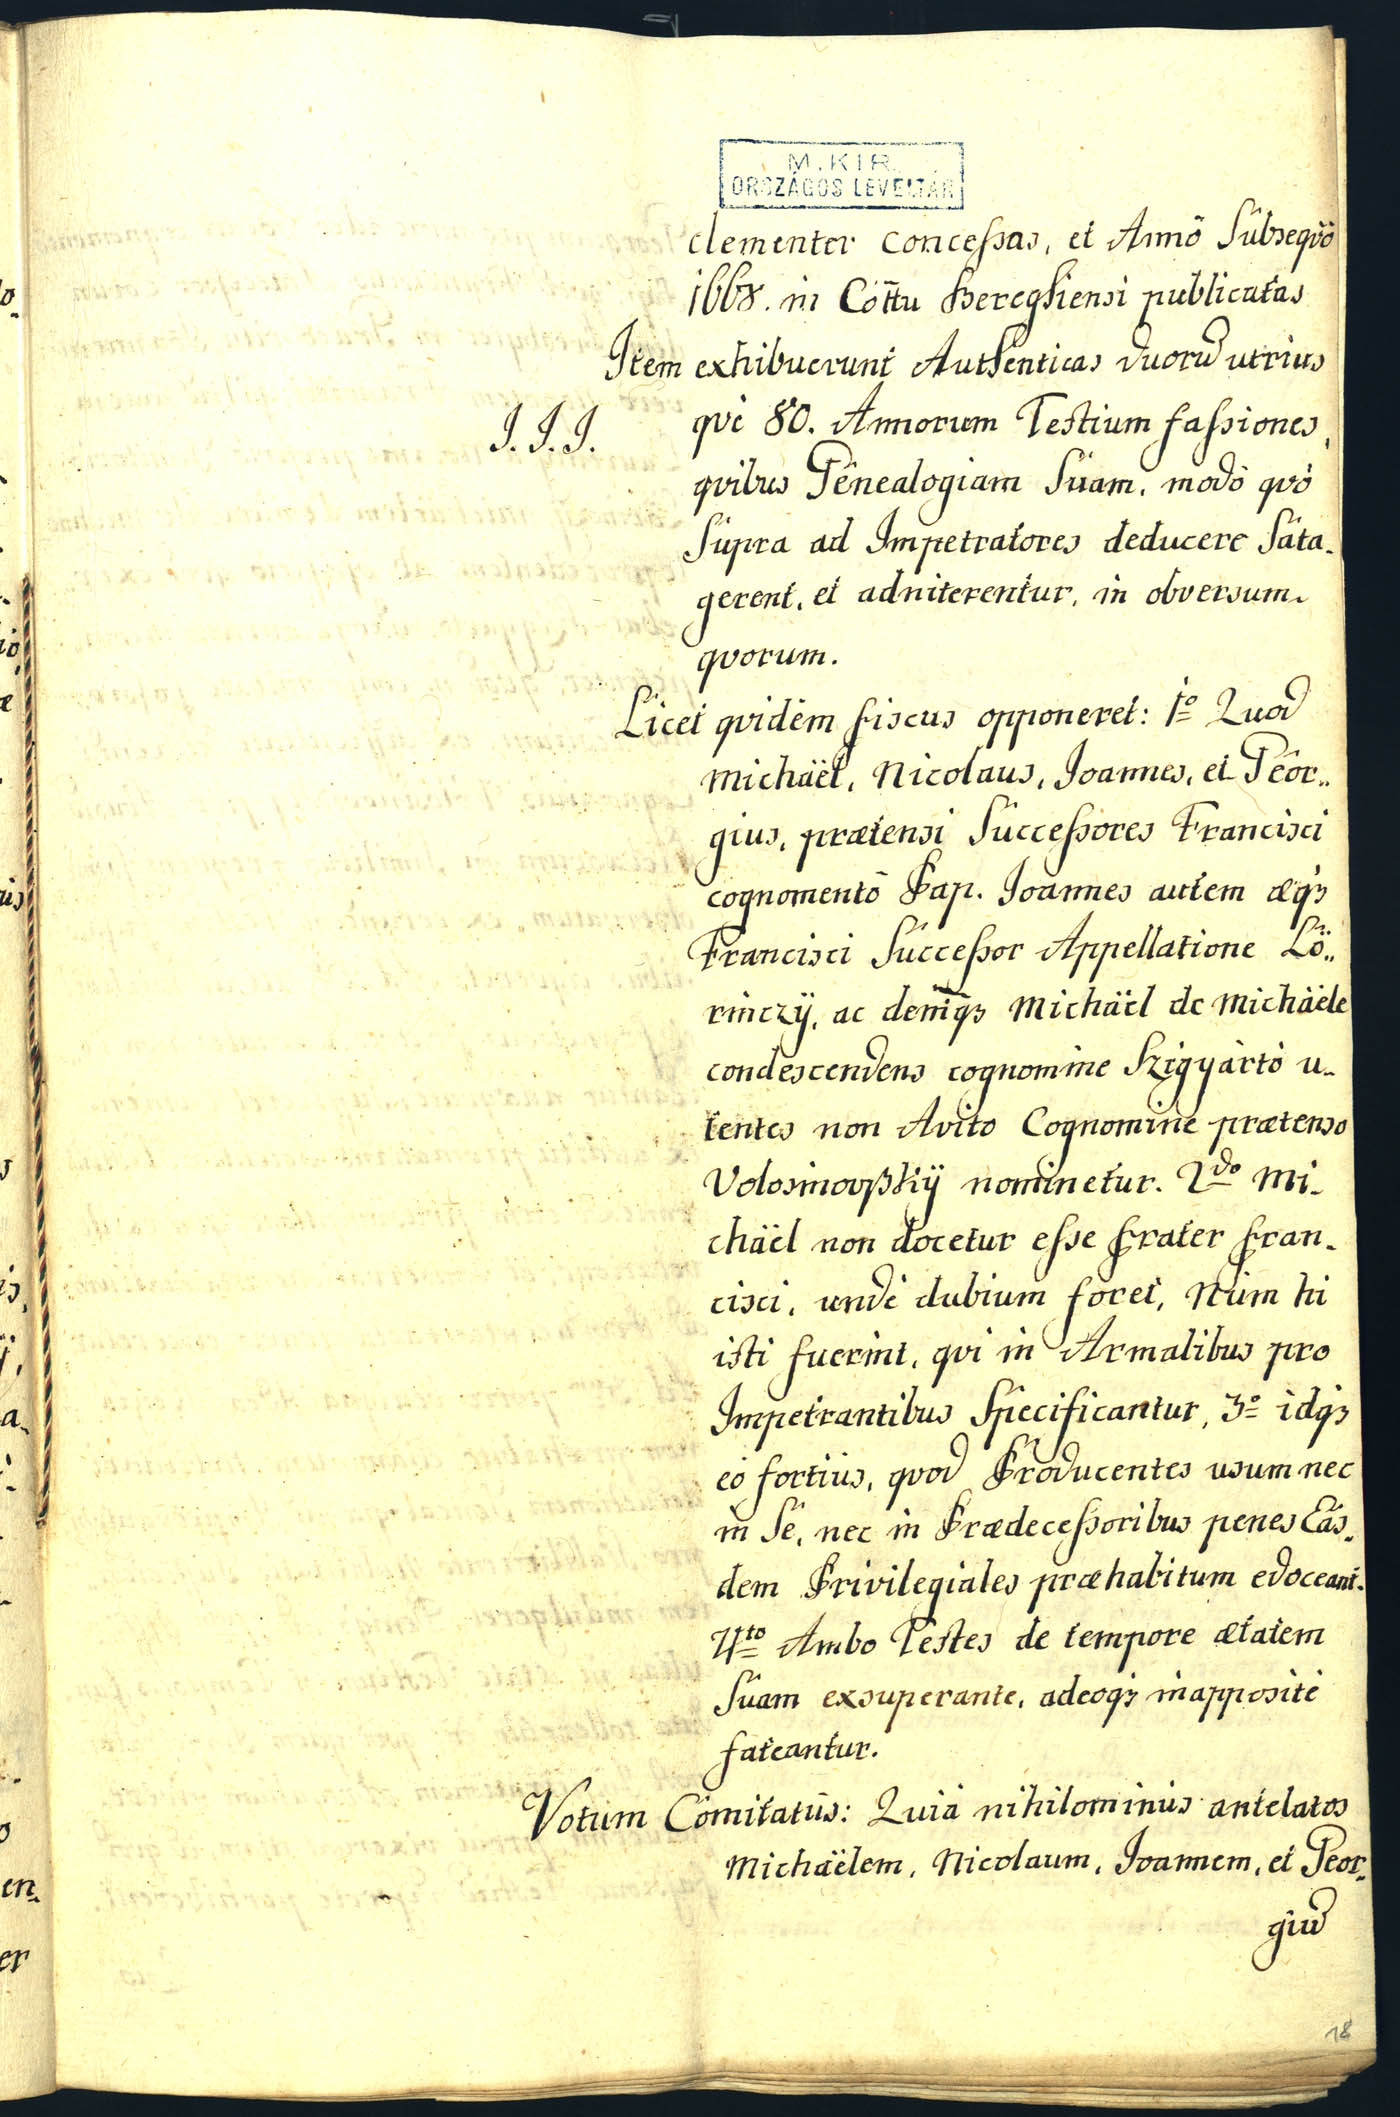 M. KIR.
ORSZÁGOS LEVÉLTÁR
clementer concessas, et Annō Sûbseqvō
1668. in Cottu Bereghiensi publicatas
Item exhibuerunt Authenticas duorū utrius
J. J. J. què 80. Annorum Testium fassiones,
qvibus Genealogiam Sûam, modò qvò
Sûpra ad Impetratores deducere Sata-
gerent, et adniterentur, in obversum
qvorum.
Licet qvidem fiscus opponeret: 1º Quod
Michäel, Nicolaus, Joannes, et Geor-
gius, prætensi Successores Francisci
cognomentō Pap. Joannes autem æqꝫ
Francisci Successor Appellatione Lö-
rinczÿ, ac deniqꝫ Michäel de Michäele
condescendens cognomine Szigyàrtò u-
tentes non Avito Cognomine prætenso
Volosinovßkÿ nominetur. 2do Mi-
chäel non docetur esse frater fran-
cisci, undè dubium foret, Nùm hi
isti fuerint, qvi in Armalibus pro
Impetrantibus Specificantur, 3º idqꝫ
eò fortius, qvod Producentes usum nec
in Sè, nec in Prædecessoribus penes Eas-
dem Privilegiales præhabitum edoceant.
4to Ambo Testes de tempore ætatem
Sûam exsuperante, adeoqꝫ inappositè
fateantur.
Votum Comitatûs: Quià nihilominùs antelatos
Michäelem, Nicolaum, Joannem, et Geor-
giū
18